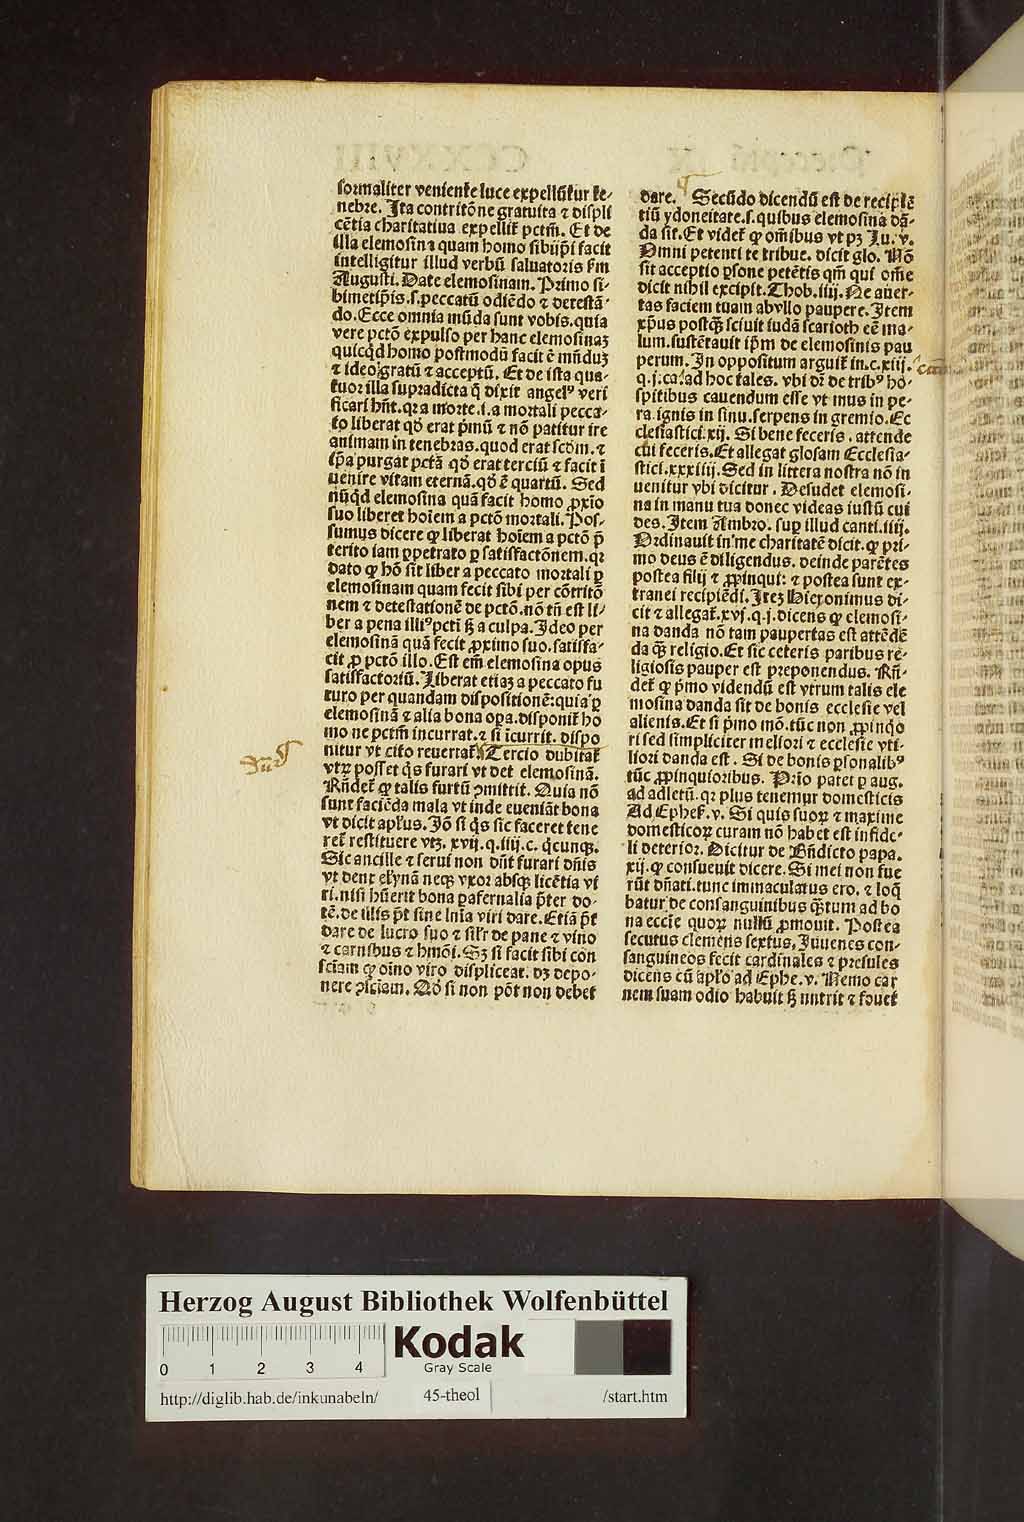 formaliter veniente luce expellūtur te-
nebre. Ita contritōne gratuita ⁊ displi
cētia charitatiua expellit̄ pctm̄. Et de
illa elemosina quam homo sibijpī facit
intelligitur illud verbū saluatoris ẜm
Augusti. Date elemosinam. Primo si-
bimetip̄is.s.peccatū odiēdo ⁊ detestā-
do. Ecce omnia mūda sunt vobis. quia
vere pctō expulso per hanc elemosinaꝫ
quicq̇d homo postmodū facit ē mūduꝫ
⁊ ideo gratū ⁊ acceptū. Et de ista qua-
tuor illa supradicta q̄ dixit angelꝰ veri
ficari hn̄t. qꝛ a morte.i.a mortali pecca-
to liberat qd̄ erat p̄mū ⁊ nō patitur ire
animam in tenebras. quod erat scdm̄. ⁊
ip̄a purgat pctā qd̄ erat terciū ⁊ facit ī
uenire vitam eternā. qd̄ ē quartū. Sed
nūq̇d elemosina quā facit homo ꝓxīo
suo liberet hoīem a pctō mortali. Pos-
sumus dicere ꝙ liberat hoīem a pctō p̄
terito iam ꝑpetrato ꝑ satisfactōnem. qꝛ
dato ꝙ hō sit liber a peccato mortali ꝑ
elemosinam quam fecit sibi per cōtritō
nem ⁊ detestationē de pctō. nō tn̄ est li-
ber a pena illiꝰ pcti ꝫ a culpa. Ideo per
elemosinā quā fecit ꝓximo suo. satisfa-
cit ꝓ pctō illo. Est em̄ elemosina opus
satisfactoriū. Liberat etiaꝫ a peccato fu
turo per quandam dispositionē: quia ꝑ
elemosinā ⁊ alia bona oꝑa. disponit̄ ho
mo ne pctm̄ incurrat. ⁊ si īcurrit. dispo
nitur vt cito reuertat̄. Tercio dubitat̄
vtꝝ posset q̇s furari vt det elemosinā.
Rn̄det̄ ꝙ talis furtū ↄmittit. Quia nō
sunt faciēda mala vt inde eueniāt bona
vt dicit apl̄us. Iō si q̇s sic faceret tene
ret̄ restituere vtꝫ. xvij. q. iiij. c. q̇cunqꝫ.
Sic ancille ⁊ serui non dn̄t furari dn̄is
vt dent ely̅nā neqꝫ vxor absqꝫ licētia vi
ri. nisi hūerit bona ꝑafernalia p̄ter do-
tē. de illis p̄t sine lnīa viri dare. Etiā p̄t
dare de lucro suo ⁊ sil̄r de pane ⁊ vino
⁊ carnibus ⁊ hmōi. Sꝫ si facit sibi con
sciam ꝙ oīno viro displiceat. dꝫ depo-
nere ↄsciam. Qd̄ si non pōt non debet
dare. Secūdo dicendū est de recipiē
tiū ydoneitate.s. quibus elemosina dā-
da sit. Et videt̄ ꝙ om̄ibus vt pꝫ Lu. v.
Omni petenti te tribue. dicit glo. Nō
sit acceptio ꝑsone petētis qm̄ qui om̄e
dicit nihil excipit. Thob. iiij. Ne auer-
tas faciem tuam ab vllo paupere. Item
xp̄us postqꝫ sciuit iudā scarioth eē ma-
lum. sustētauit ip̄m de elemosinis pau
perum. In oppositum arguit̄ in. c. xiij.
q. j. ca. ad hoc tales. vbi dr̄ de tribꝰ ho-
spitibus cauendum esse vt mus in pe-
ra. ignis in sinu. serpens in gremio. Ec
clesiastici. xij. Si bene feceris. attende
cui feceris. Et allegat glosam Ecclesia-
stici. xxxiiij. Sed in littera nostra nō in
uenitur vbi dicitur. Desudet elemosi-
na in manu tua donec videas iustū cui
des. Item Ambro. suꝑ illud canti. iiij.
Ordinauit in me charitatē dicit. ꝙ pri-
mo deus ē diligendus. deinde parētes
postea filij ⁊ ꝓpinqui: ⁊ postea sunt ex-
tranei recipiēdi. Iteꝫ Hieronimus di-
cit ⁊ allegat̄. xvj. q. j. dicens ꝙ elemosi-
na danda nō tam paupertas est attēdē
da qꝫ religio. Et sic ceteris paribus re-
ligiosis pauper est preponendus. Rn̄-
det̄ ꝙ p̄mo videndū est vtrum talis ele
mosina danda sit de bonis ecclesie vel
alienis. Et si p̄mo mō. tūc non ꝓpinq̇o
ri sed simpliciter meliori ⁊ ecclesie vti-
liori danda est. Si de bonis ꝑsonalibꝰ
tūc ꝓpinquioribus. Prīo patet ꝑ aug.
ad adletū. qꝛ plus tenemur domesticis
Ad Ephes. v. Si quis suoꝝ ⁊ maxime
domesticoꝝ curam nō habet est infide-
li deterior. Dicitur de Bn̄dicto papa.
xij. ꝙ consueuit dicere. Si mei non fue
rūt dn̄ati. tunc immaculatus ero. ⁊ loq̄
batur de consanguinibus qꝫtum ad bo
na eccīe quoꝝ nullū ꝓmouit. Postea
secutus clemens sextus, Iuuenes con-
sanguineos fecit cardinales ⁊ presules
dicens cū apl̄o ad Ephe. v. Nemo car
nem suam odio habuit ꝫ nutrit ⁊ fouet
Herzog August Bibliothek Wolfenbüttel
0 1 2 3 4
Kodak
Gray Scale
http://diglib.hab.de/inkunabeln/ 45-theol /start.htm